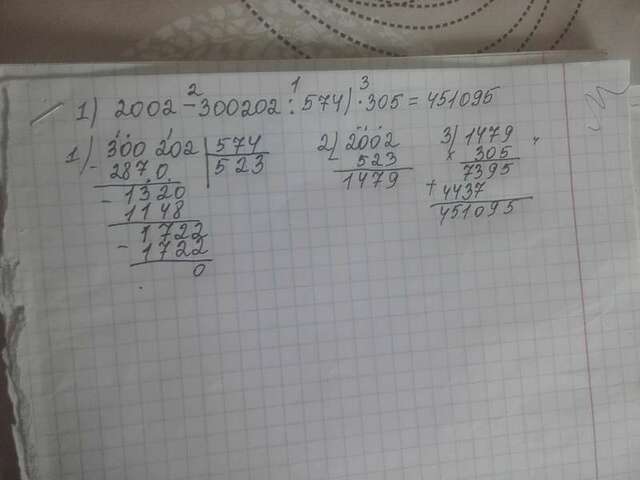 2 1 3
1) 2002 - 300202 : 574) · 305 = 451095
1) 300 202 | 574
- 2870. 523
- 1320
1148
- 1722
1722
0
2) 2002
- 523
1479
3) 1479
× 305
7395
+ 4437
451095